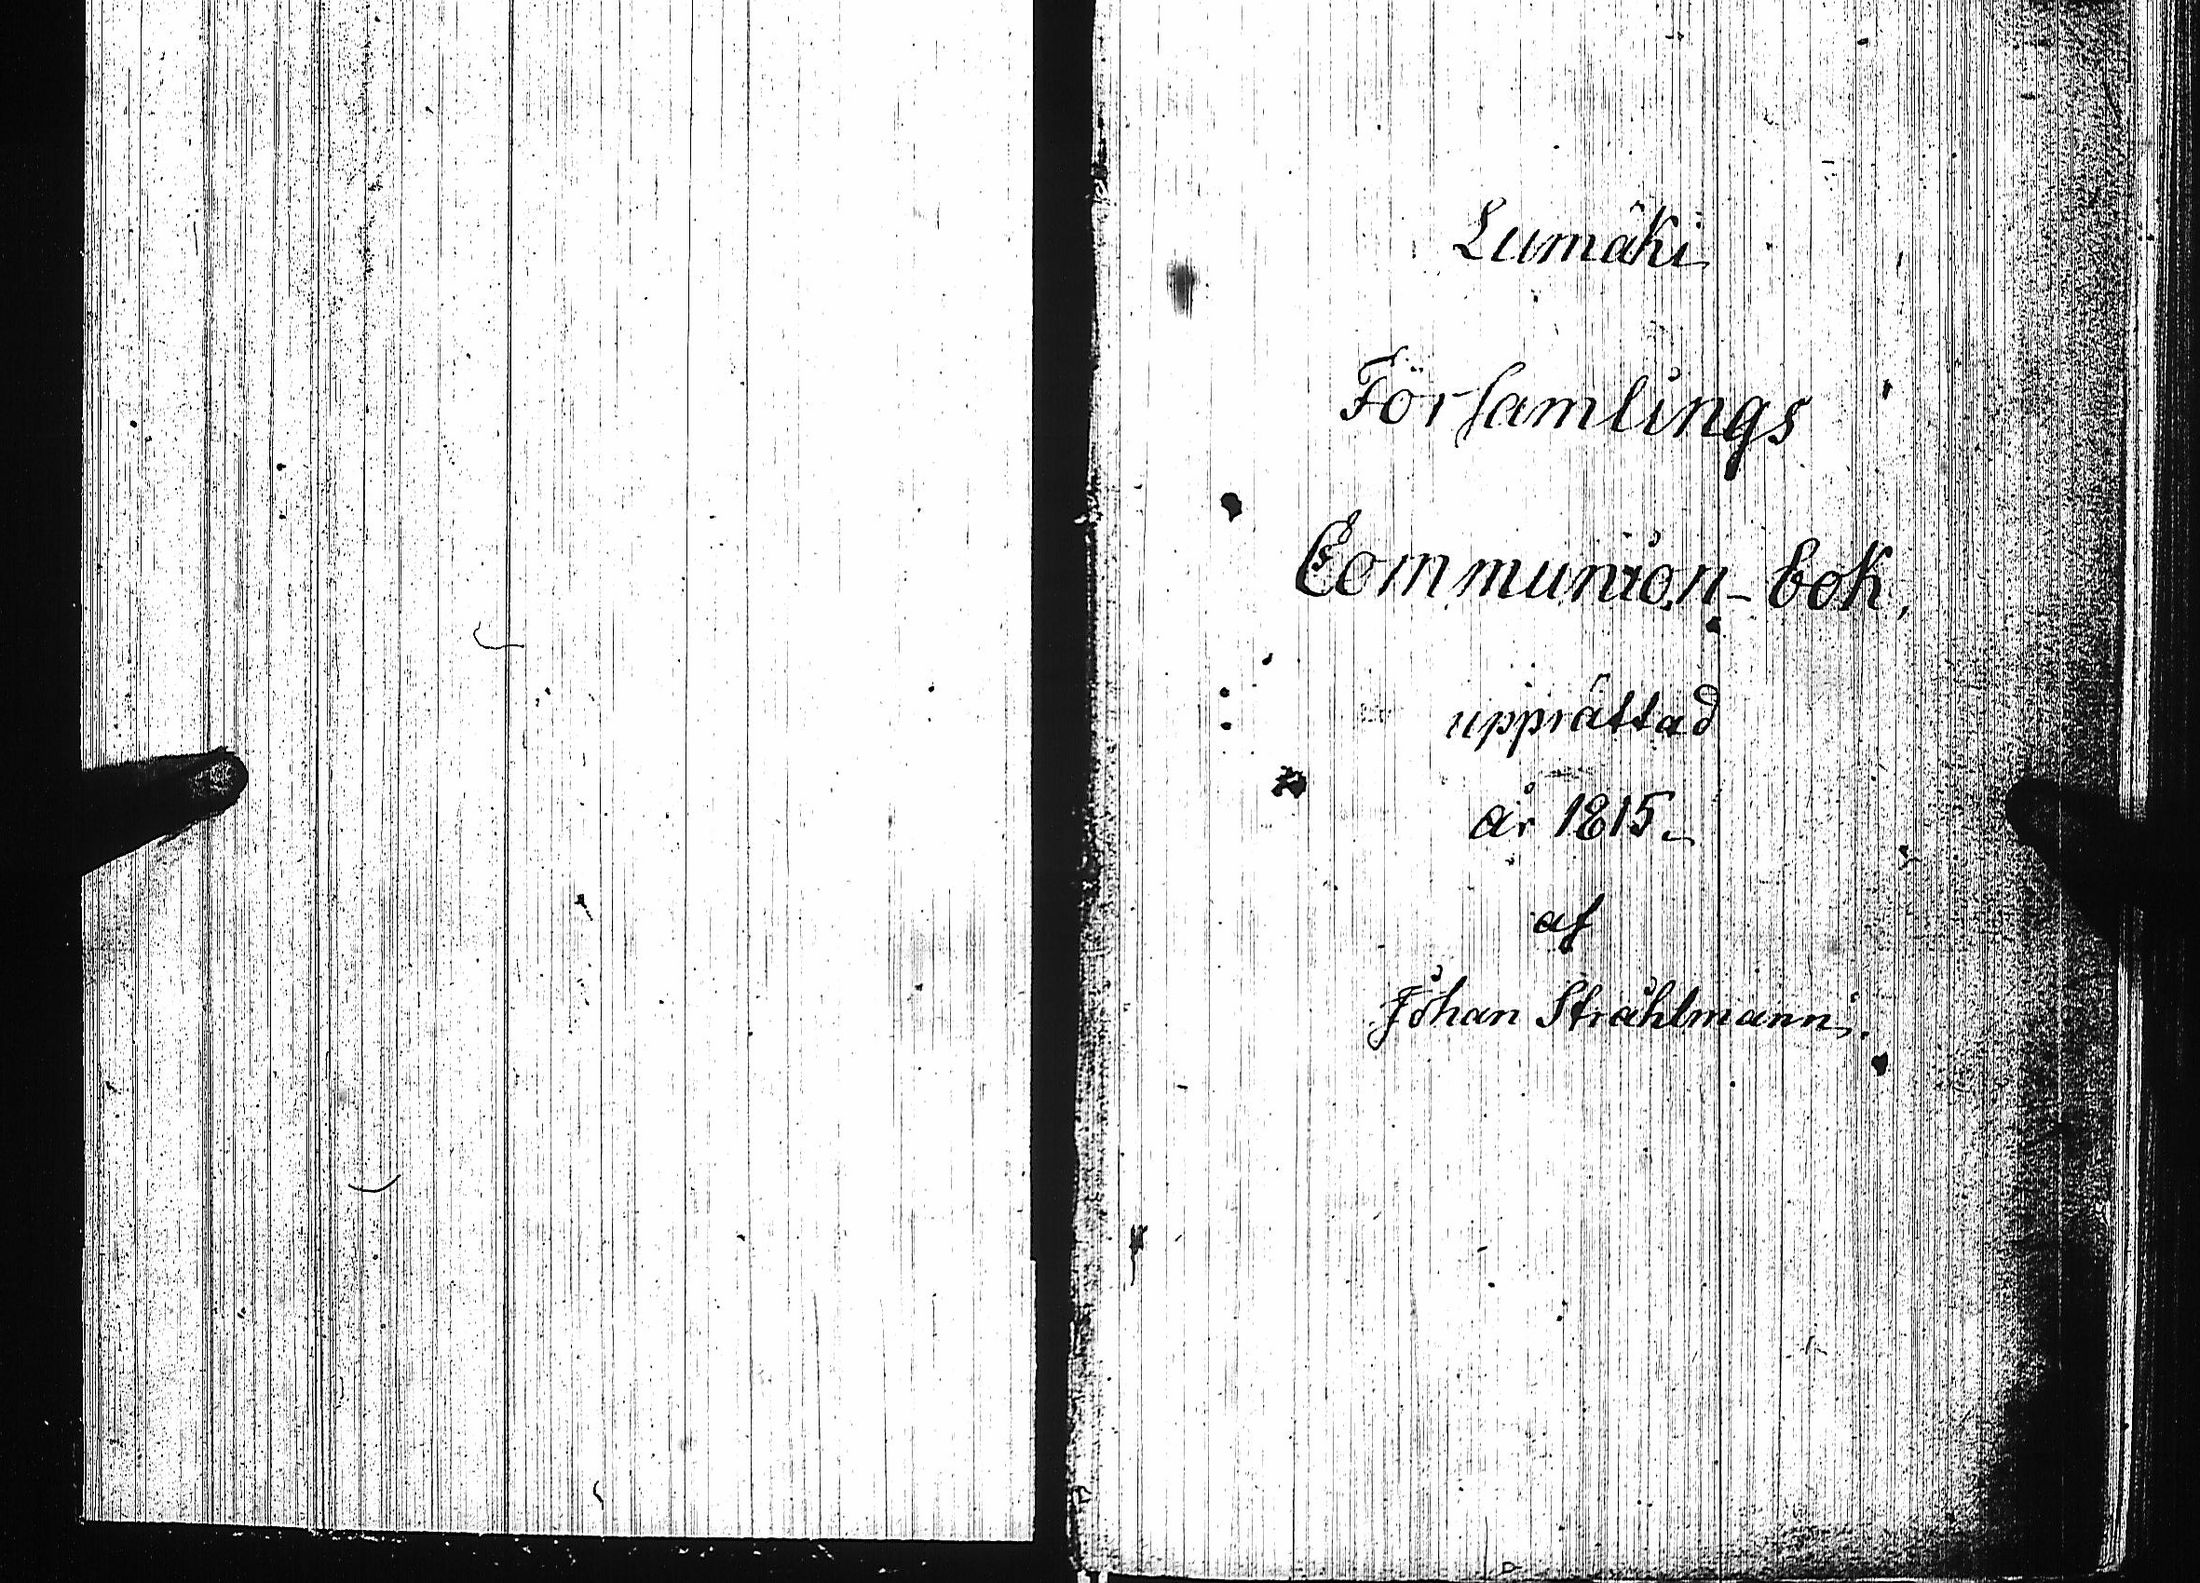 Lumäki
Församlings
Communion-bok,
upprättad
år 1815.
af
Johan Stråhlmann.